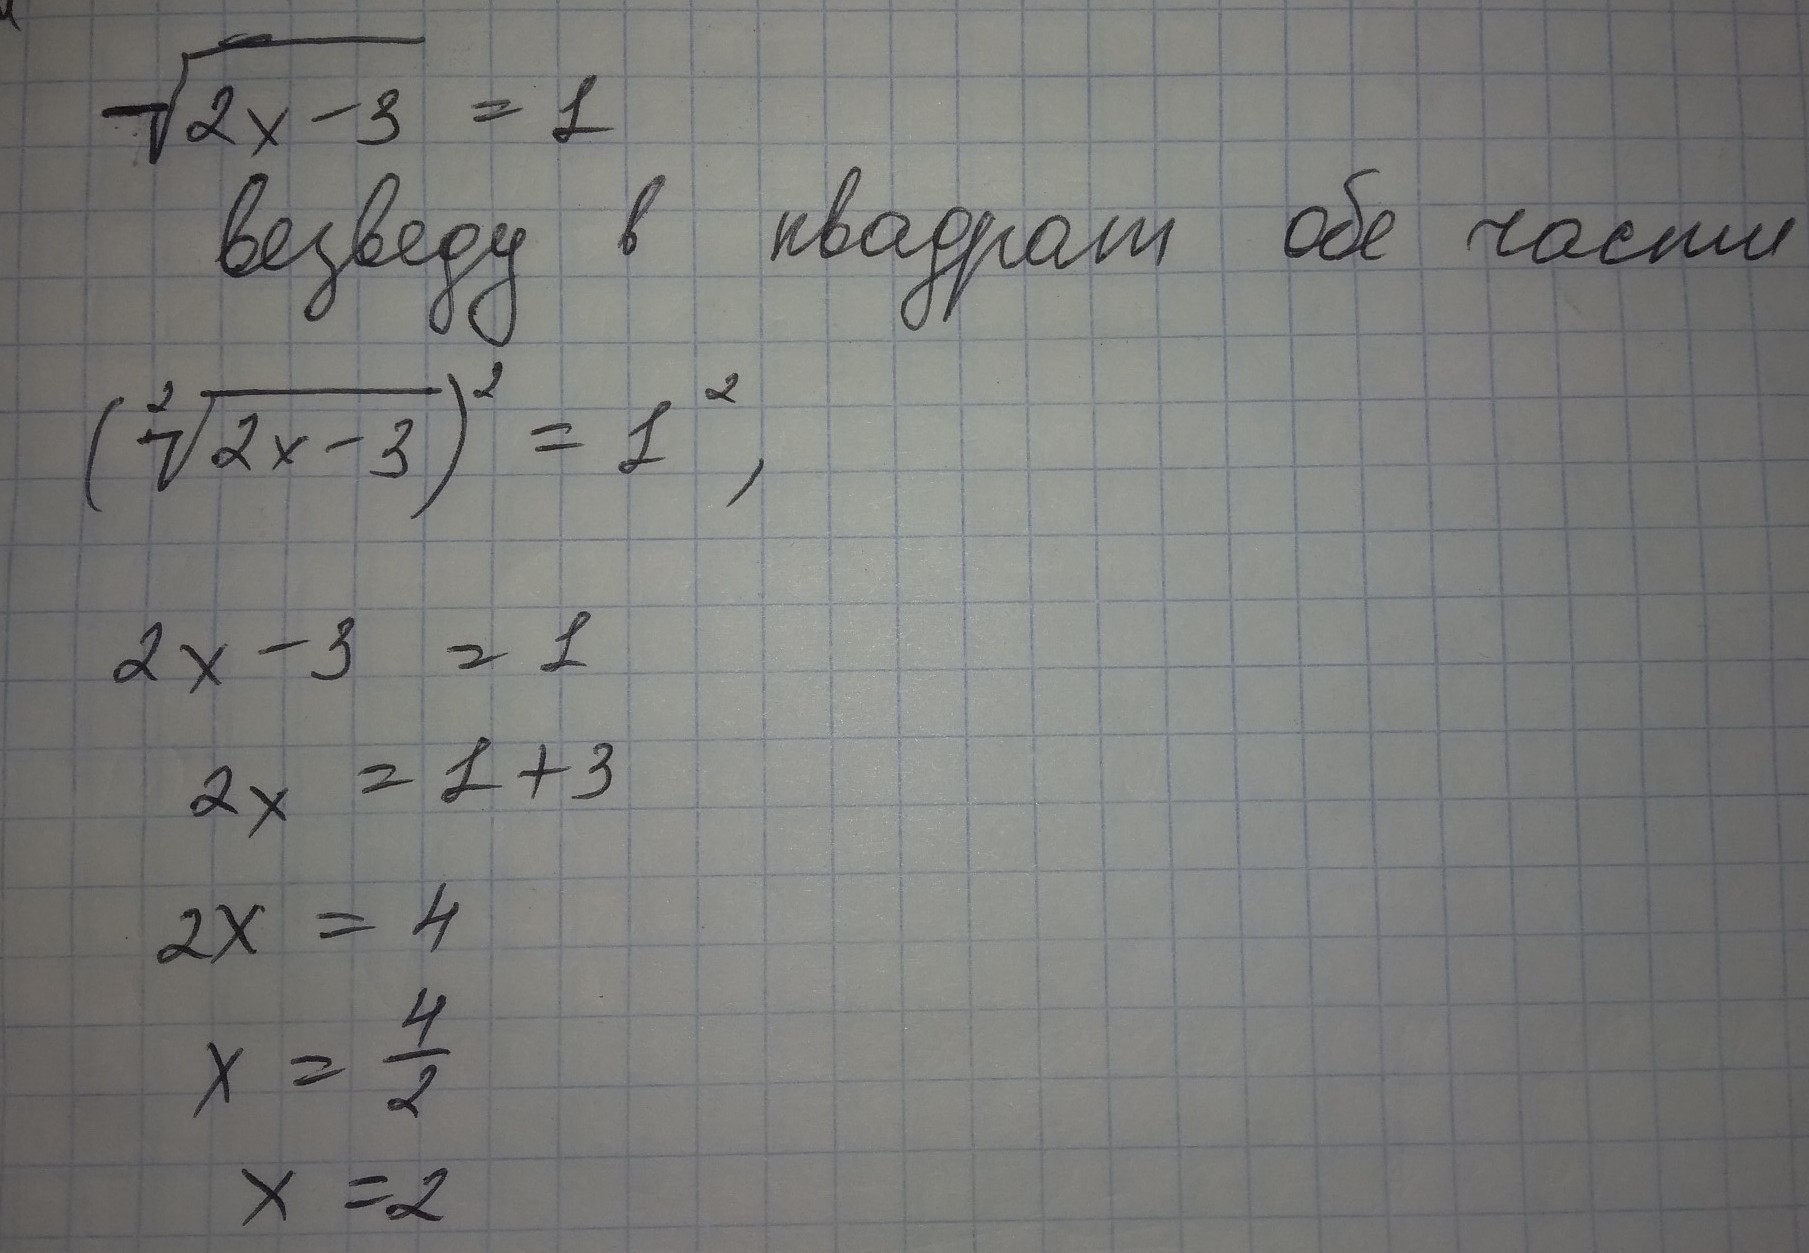 √2x-3 = 1
везведу в квадрат обе части
(²√2x-3)² = 1²,
2x-3 = 1
2x = 1+3
2x = 4
x = 4/2
x = 2